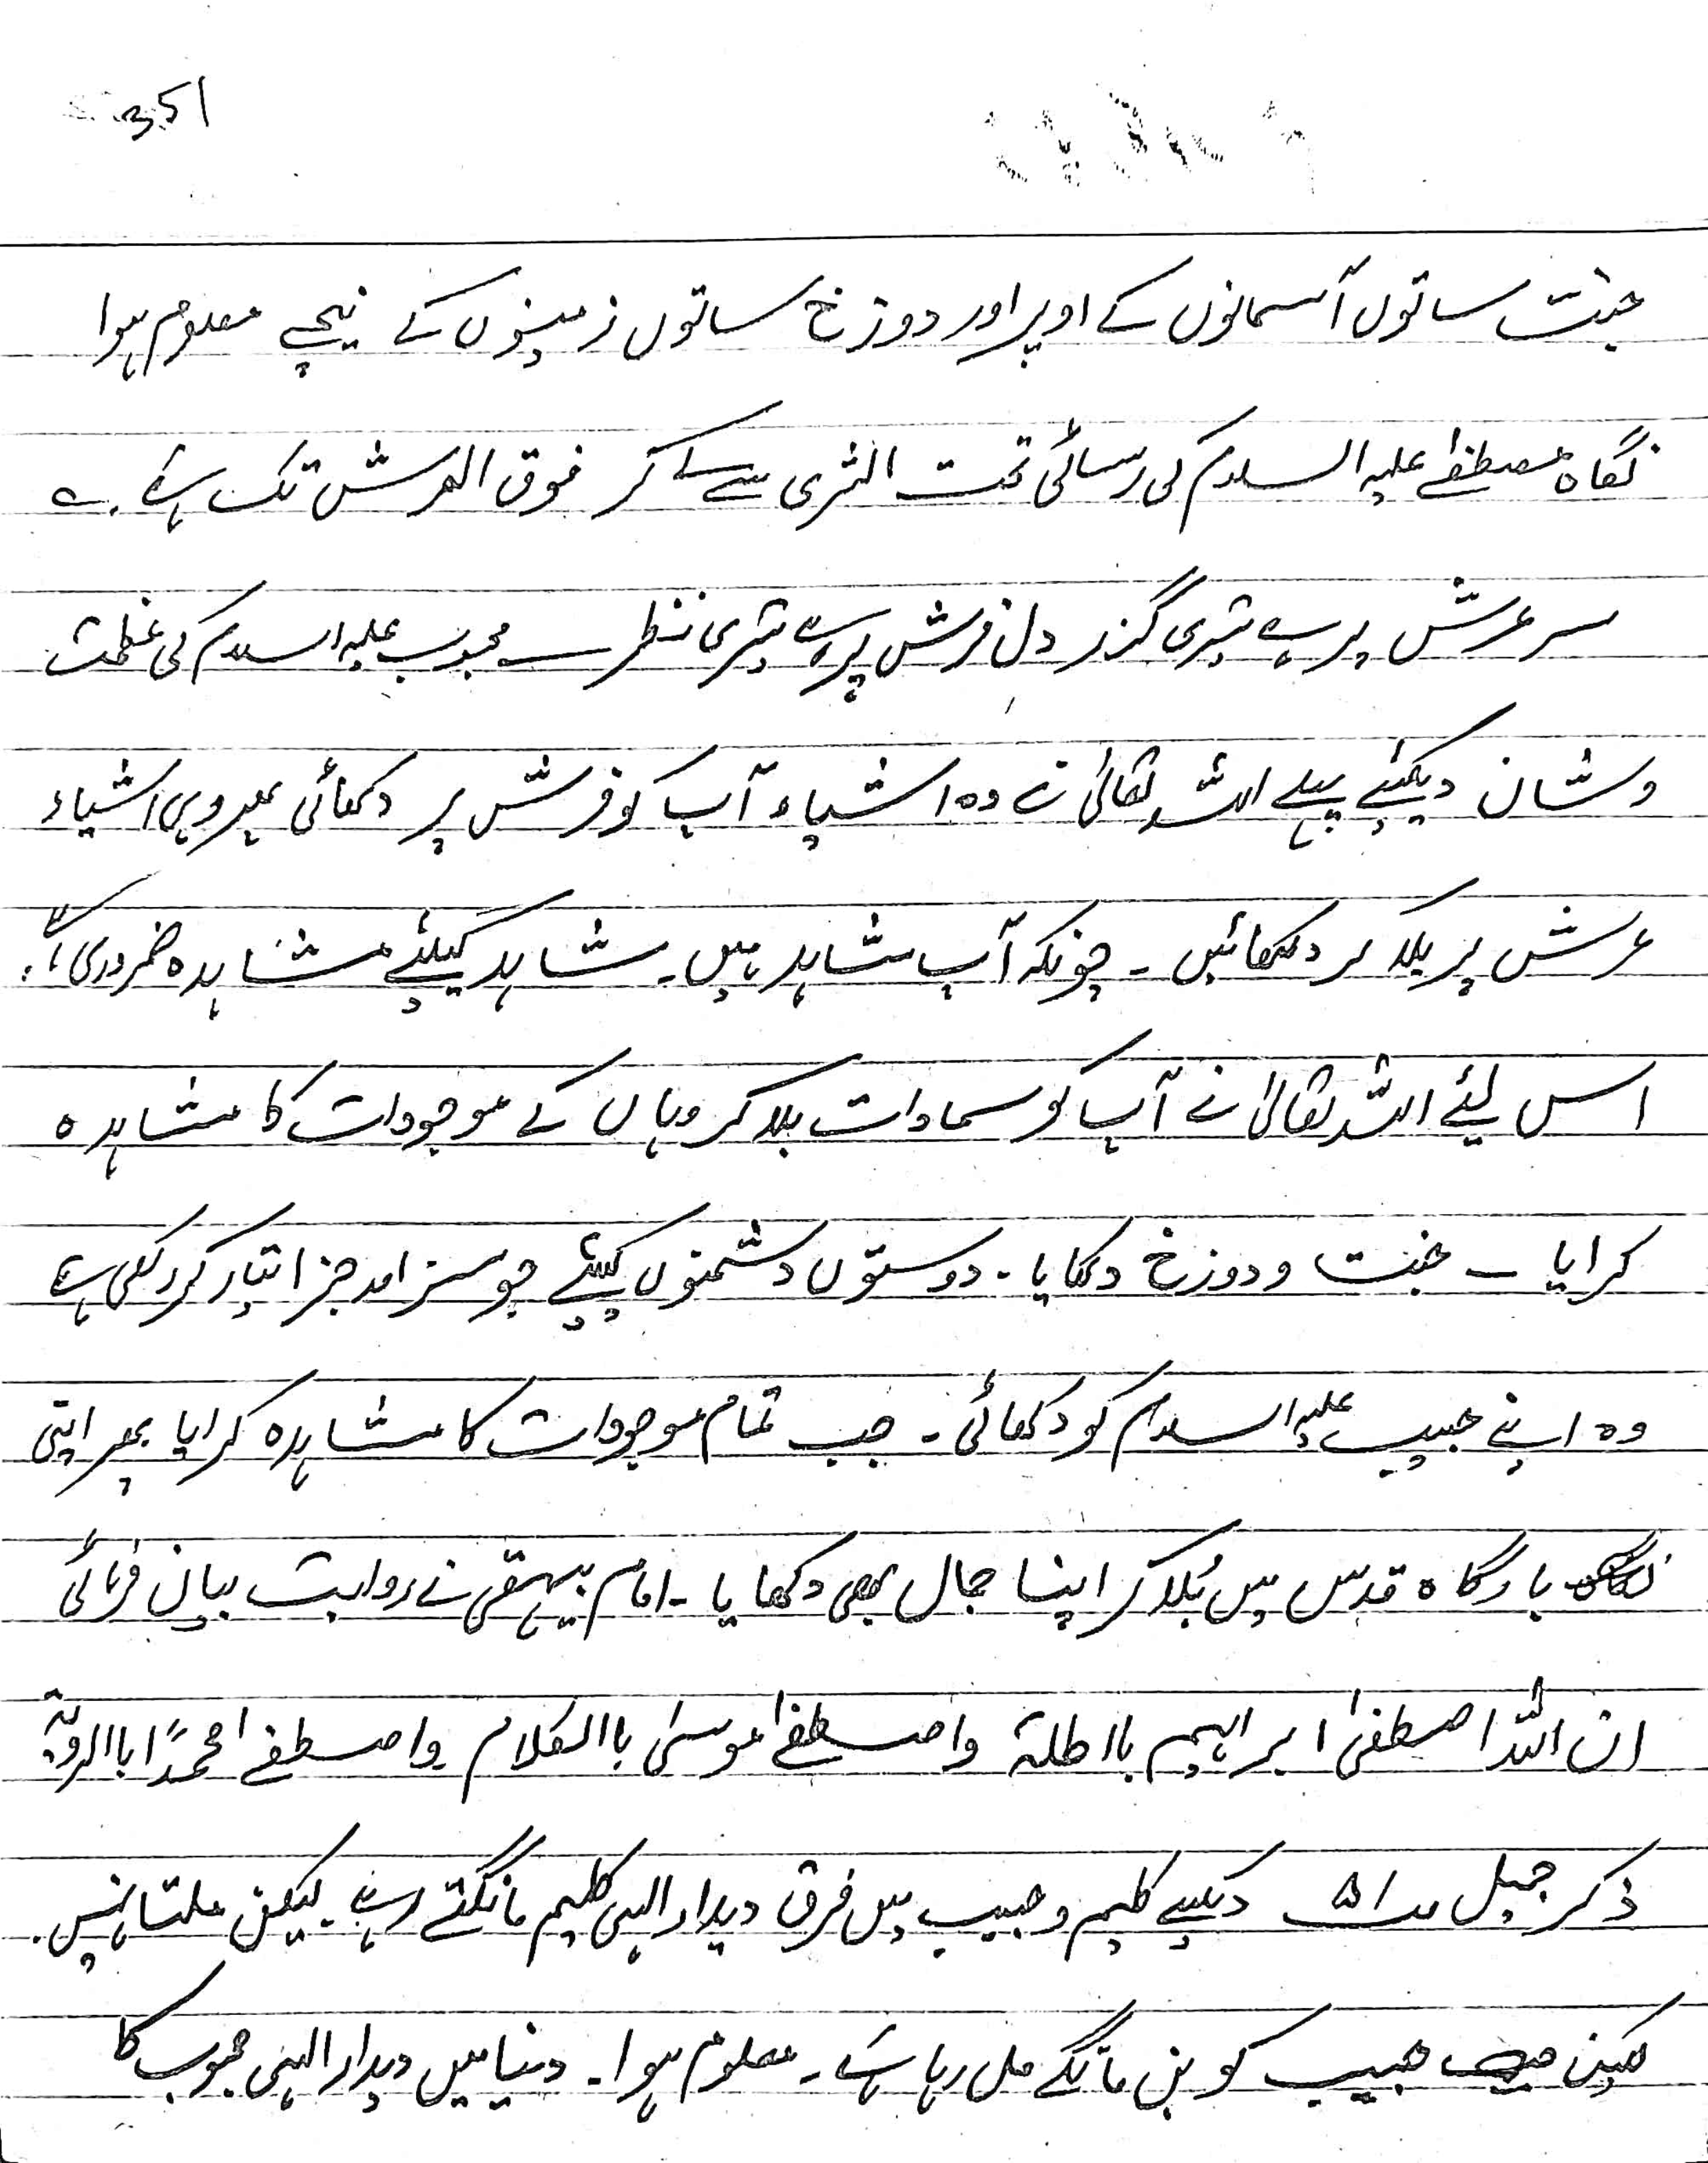 351
جنت ساتوں آسمانوں کے اوپر اور دوزخ ساتوں زمینوں کے نیچے معلوم ہوا
نگاہ مصطفےٰ علیہ السلام کی رسائی تحت الثری سے لے کر فوق العرش تک ہے۔
سر عرش پر ہے تیری گزر دل فرش پر ہے تیری نظر محبوب علیہ السلام کی عظمت
وشان دیکھئے پہلے اللہ تعالیٰ نے وہ اشیاء آپ کو فرش پر دکھائی پھر وہی اشیاء
عرش پر بلا کر دکھائیں ۔ چونکہ آپ شاہد ہیں۔ شاہد کیلئے مشاہدہ ضروری ہے۔
اس لئے اللہ تعالیٰ نے آپ کو سماوات بلا کر وہاں کے موجودات کا مشاہدہ
کرایا ۔ جنت و دوزخ دکھایا ۔ دوستوں دشمنوں کیلئے جو سزا اور جزا تیار کر رکھی ہے
وہ اپنے حبیب علیہ السلام کو دکھائی ۔ جب تمام موجودات کا مشاہدہ کرایا پھر اپنی
بارگاہ قدس میں بُلا کر اپنا جمال بھی دکھایا ۔ امام بیہقی نے روایت بیان فرمائی
ان اللہ اصطفیٰ ابراہیم باالخلۃ واصطفےٰ موسیٰ باالکلام واصطفےٰ محمدًا باالرویۃ
ذکر جمیل دیکھیے کلیم و حبیب میں فرق دیدار الہی کلیم مانگتے رہے۔ لیکن ملتا نہیں۔
لیکن حبیب کو بن مانگے مل رہا ہے ۔ معلوم ہوا ۔ دنیا میں دیدار الہی محبوب کا